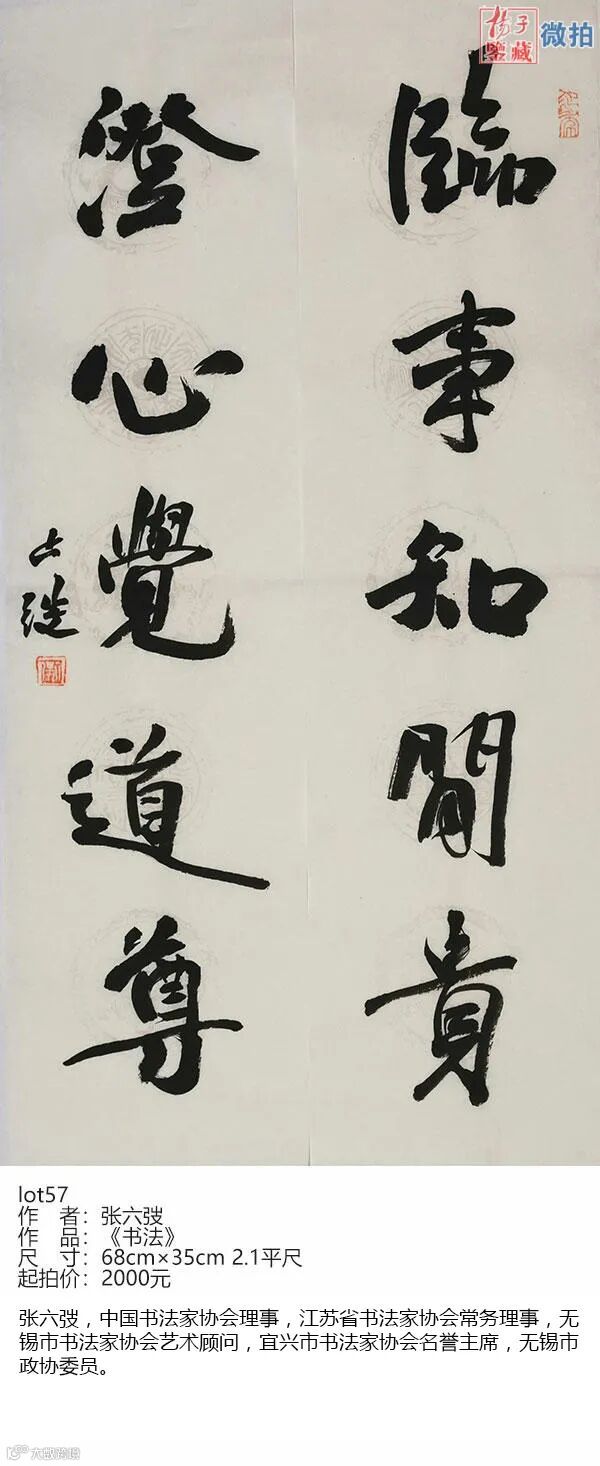 揚子
鑒藏
微拍
臨事知閒貴
澄心覺道尊
lot57
作 者：张六弢
作 品：《书法》
尺 寸：68cm×35cm 2.1平尺
起拍价：2000元
张六弢，中国书法家协会理事，江苏省书法家协会常务理事，无
锡市书法家协会艺术顾问，宜兴市书法家协会名誉主席，无锡市
政协委员。
大数跨境